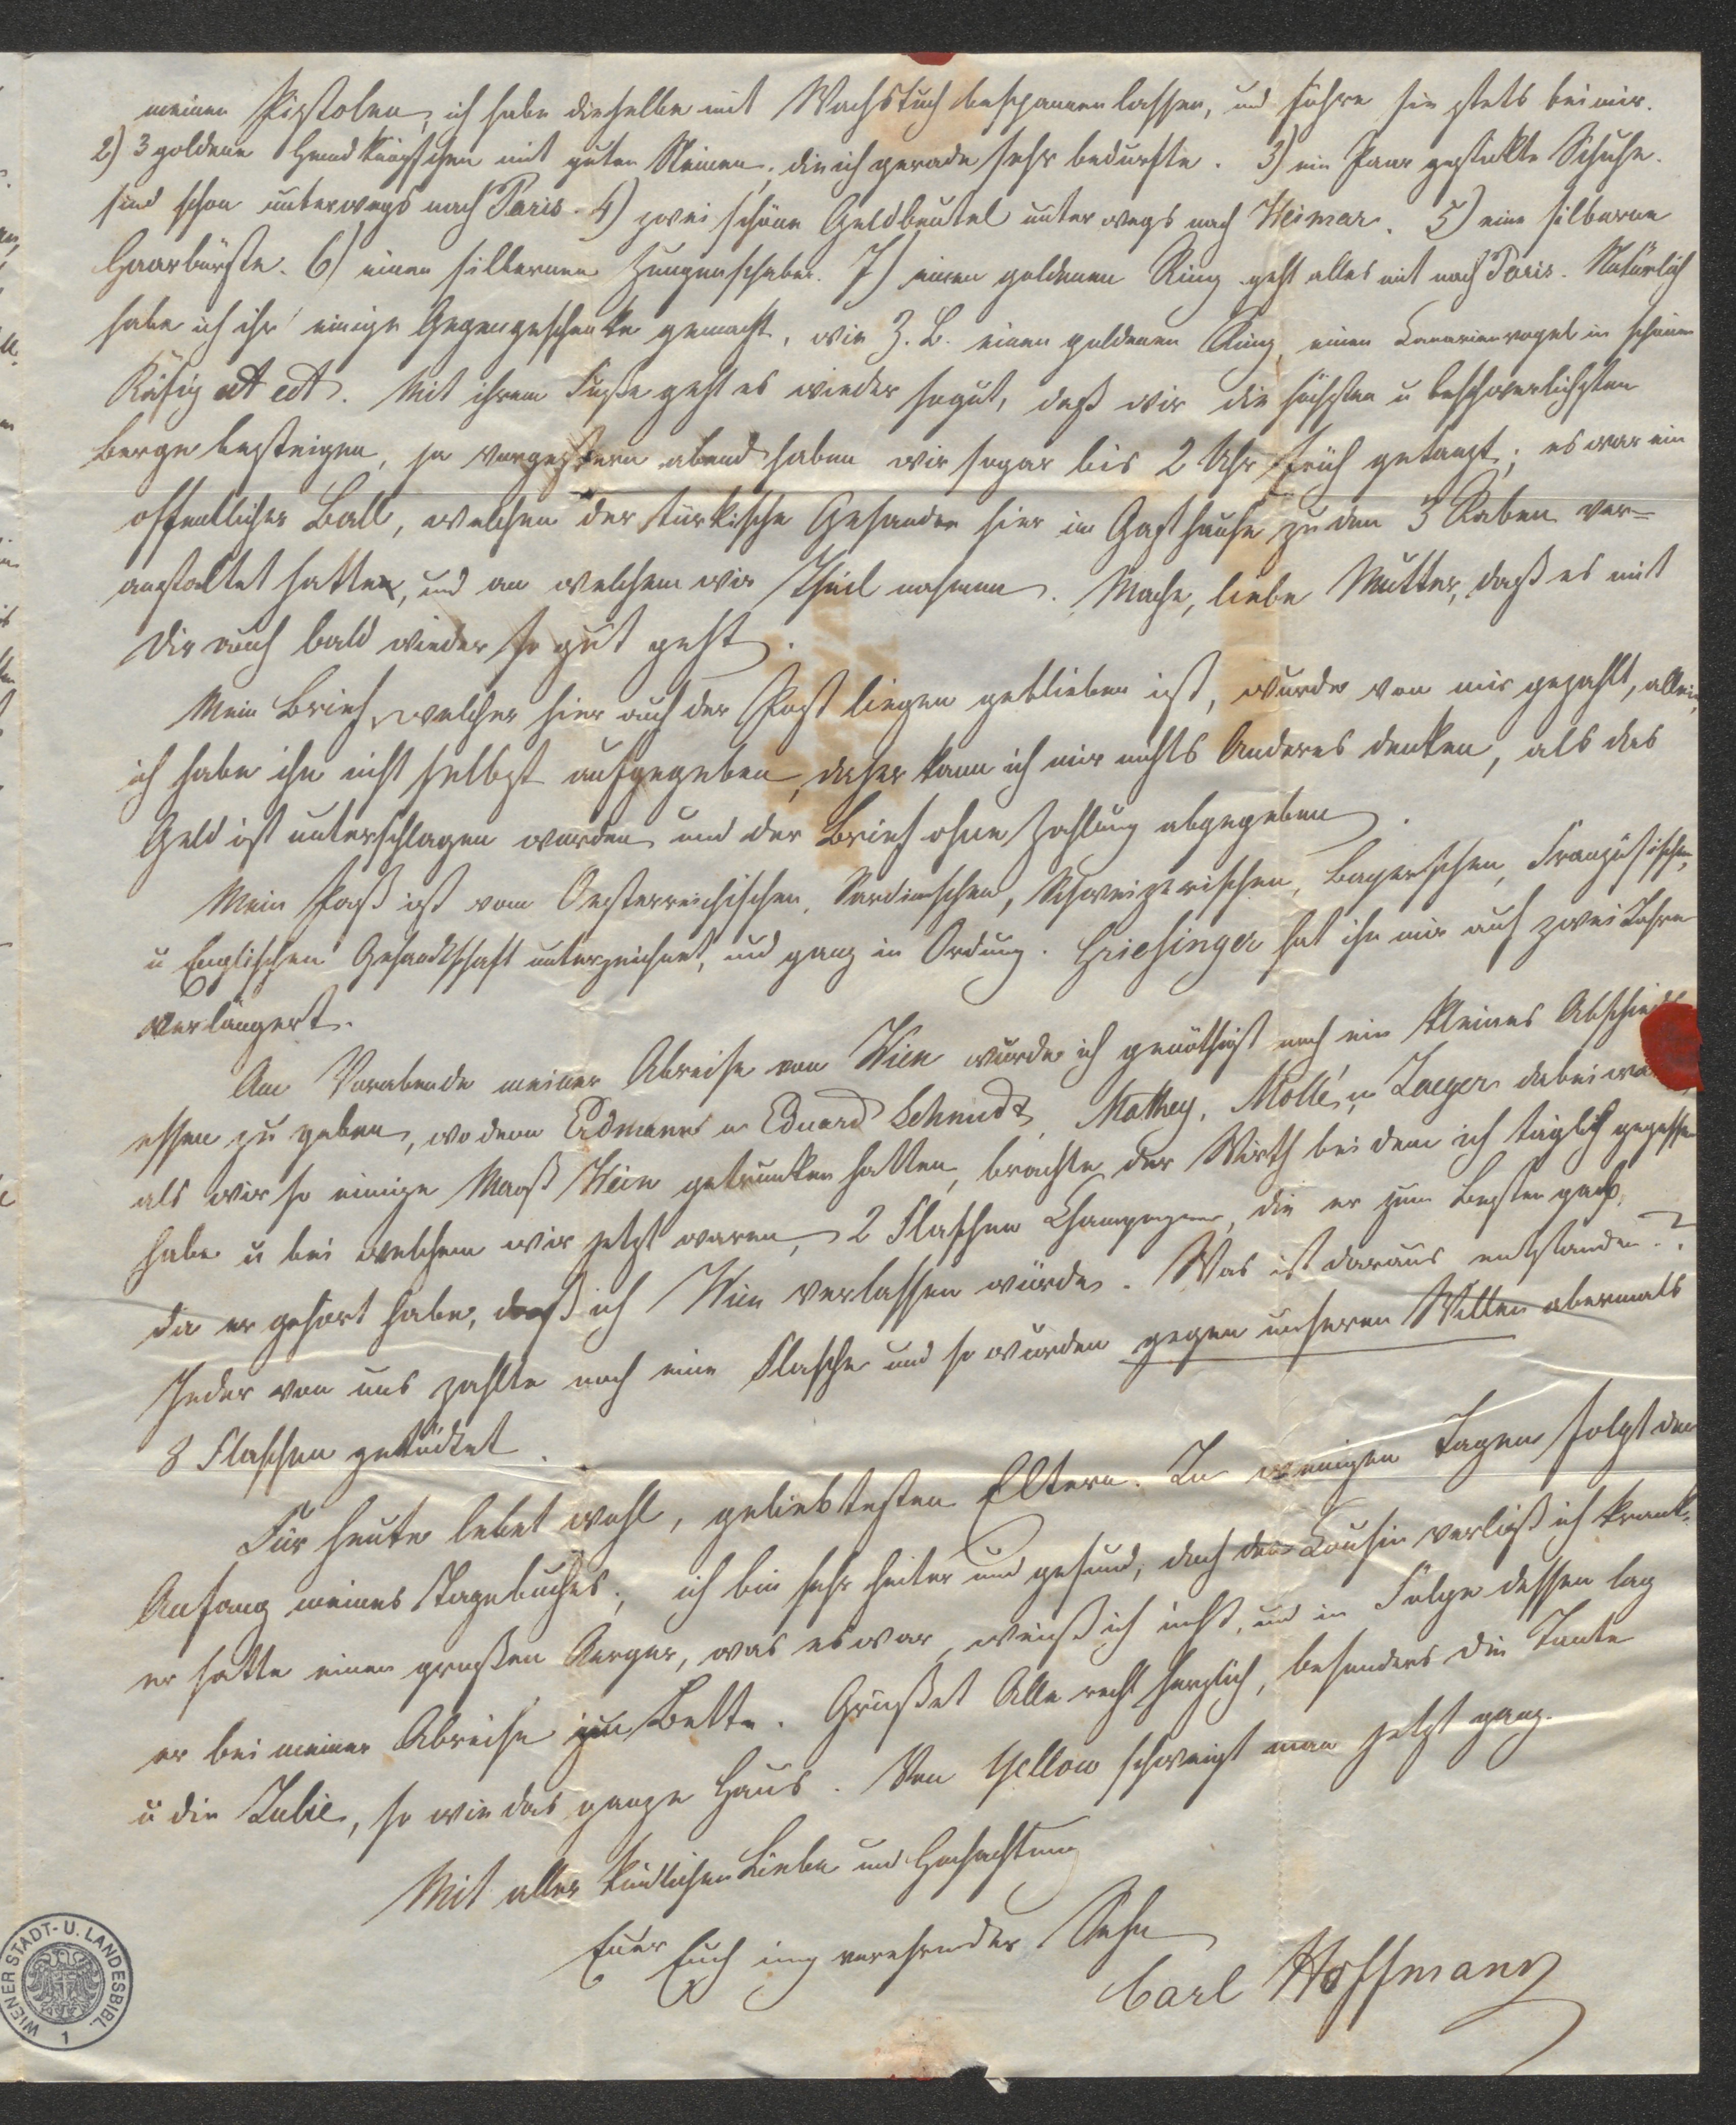 meinen Pistolen, ich habe dieselbe mit Wachstuch bespannen lassen, und führe sie stets bei mir.
2) 3 goldene Hemdknöpfchen mit guten Steinen, die ich gerade sehr bedurfte. 3) ein Paar gestickte Schuhe.
sind schon unterwegs nach Paris. 4) zwei schöne Geldbeutel unterwegs nach Weimar. 5) eine silberne
Haarbürste. 6) einen silbernen Zungenschaber. 7) einen goldenen Ring geht alles mit nach Paris. Natürlich
habe ich ihr einige Gegengeschenke gemacht, wie z. B. einen goldenen Ring, einen Kanarienvogel in schönem
Käfig ect ect. Mit ihrem Fuße geht es wieder so gut, daß wir die höchsten u beschwerlichsten
Berge besteigen, ja vorgestern abend haben wir sogar bis 2 Uhr früh getanzt; es war ein
öffentlicher Ball, welchen der türkische Gesandte hier im Gasthause zu den 3 Raben ver-
anstaltet hatte, und an welchem wir Theil nahmen. Mache, liebe Mutter, daß es mit
Dir auch bald wieder so gut geht.
Mein Brief, welcher hier auf der Post liegen geblieben ist, wurde von mir gezahlt, allein,
ich habe ihn nicht selbst aufgegeben, daher kann ich mir nichts Anderes denken, als das
Geld ist unterschlagen worden und der Brief ohne Zahlung abgegeben.
Mein Paß ist vom Oesterreichischen, Sardinischen, Schweizerischen, Bayerschen, Französischen,
u Englischen Gesandtschaft unterzeichnet, und ganz in Ordnung. Griesinger hat ihn mir auf zwei Jahre
verlängert.
Am Vorabende meiner Abreise von Wien wurde ich genöthigt noch ein kleines Abschieds
essen zu geben, wo denn Erdmann u Eduard Schmidt, Mathey, Mollé, u Jaeger dabei
als wir so einige Maaß Wein getrunken hatten, brachte der Wirth bei dem ich täglich gegessen
habe u bei welchem wir jetzt waren, 2 Flaschen Champagner, die er zum Besten gab,
da er gehört habe, daß ich Wien verlassen würde. Was ist daraus entstanden?
Jeder von uns zahlte noch eine Flasche und so wurden gegen unseren Willen abermals
8 Flaschen getödtet.
Für heute lebet wohl, geliebtesten Eltern. In wenigen Tagen folgt der
Anfang meines Tagebuches; ich bin sehr heiter und gesund, doch den Cousin verließ ich krank.
er hatte einen großen Aerger, was es war, weiß ich nicht, und in Folge dessen lag
er bei meiner Abreise zu Bette. Grüßet Alle recht herzlich, besonders die Tante
u die Julie, so wie das ganze Haus. Von Yellow schweigt man jetzt ganz.
Mit aller kindlichen Liebe und Hochachtung
Euer Euch innig verehrender Sohn
Carl Hoffmann
WIENER STADT- U. LANDESBIBL.
1